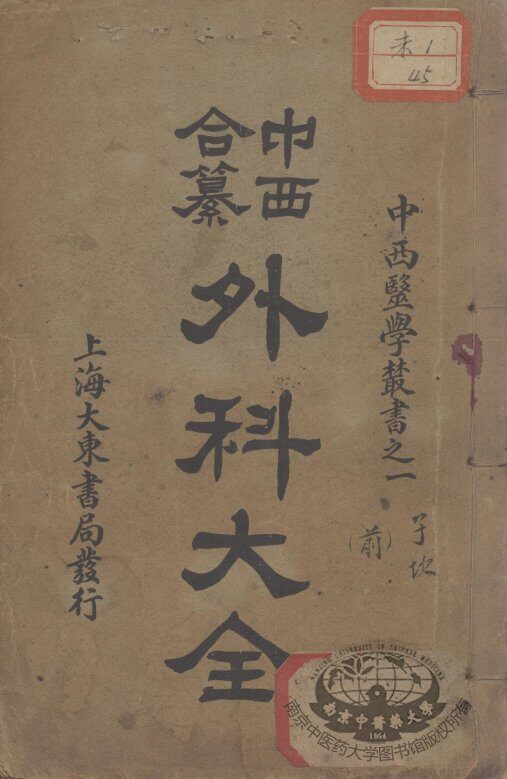 未1
45
中西醫學叢書之一
(前)
中西
合纂
外科大全
上海大東書局發行
NANJING UNIVERSITY OF CHINESE MEDICINE
南京中醫藥大學
1954
南京中医药大学图书馆版权所有